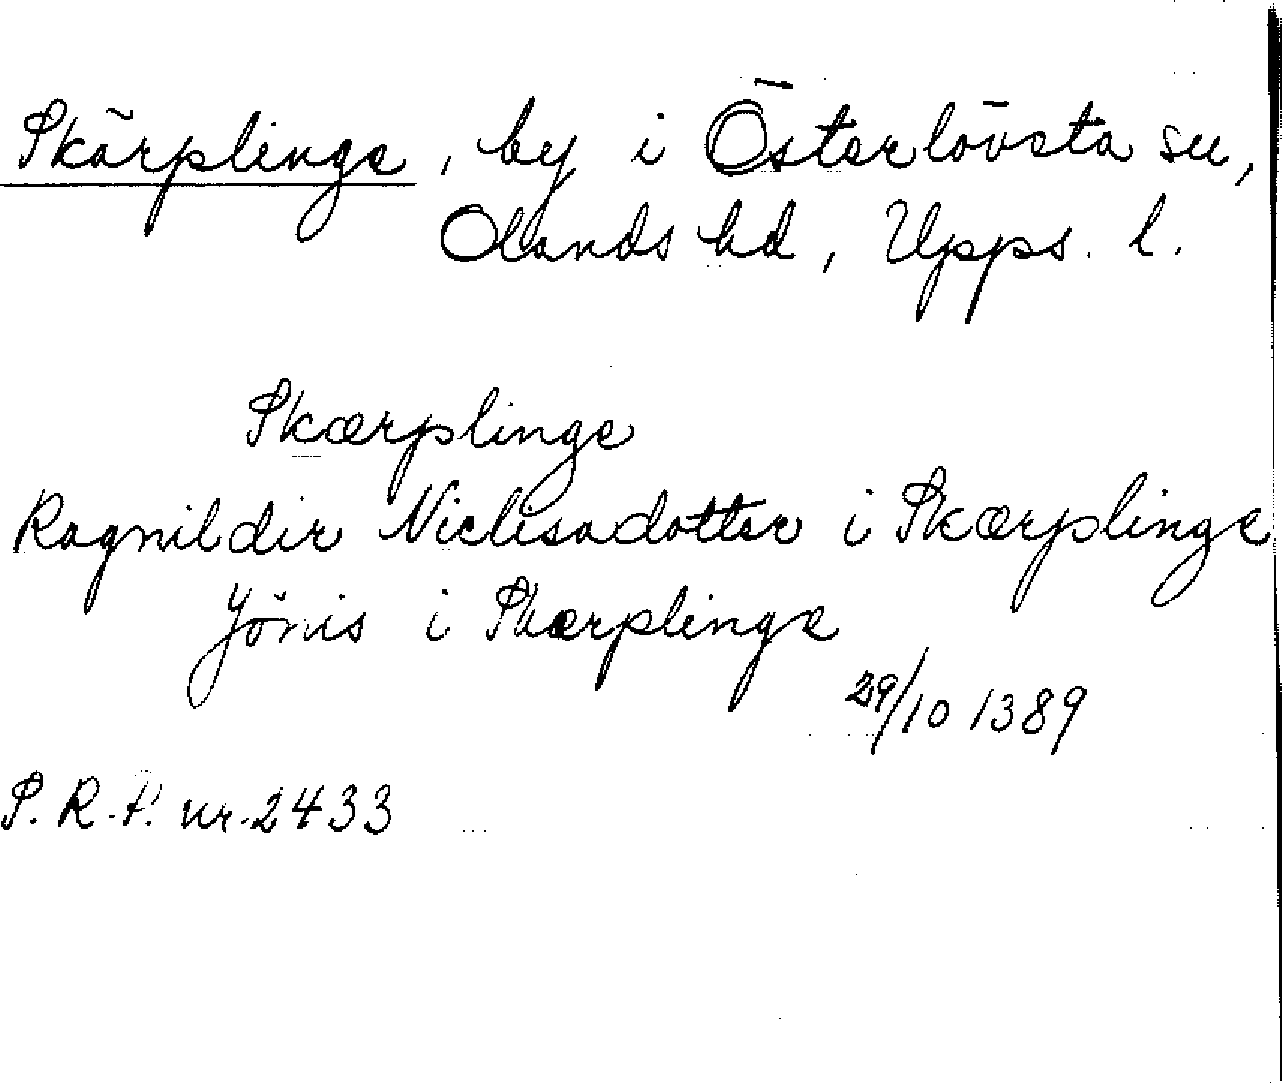 Skärplinge, by i Österlövsta sn,
Olands hd, Upps. l.
Skærplinge
Ragnildir Niclisadotter i Skærplinge
Jönis i Skærplinge
29/10 1389
P. R. P. nr. 2433